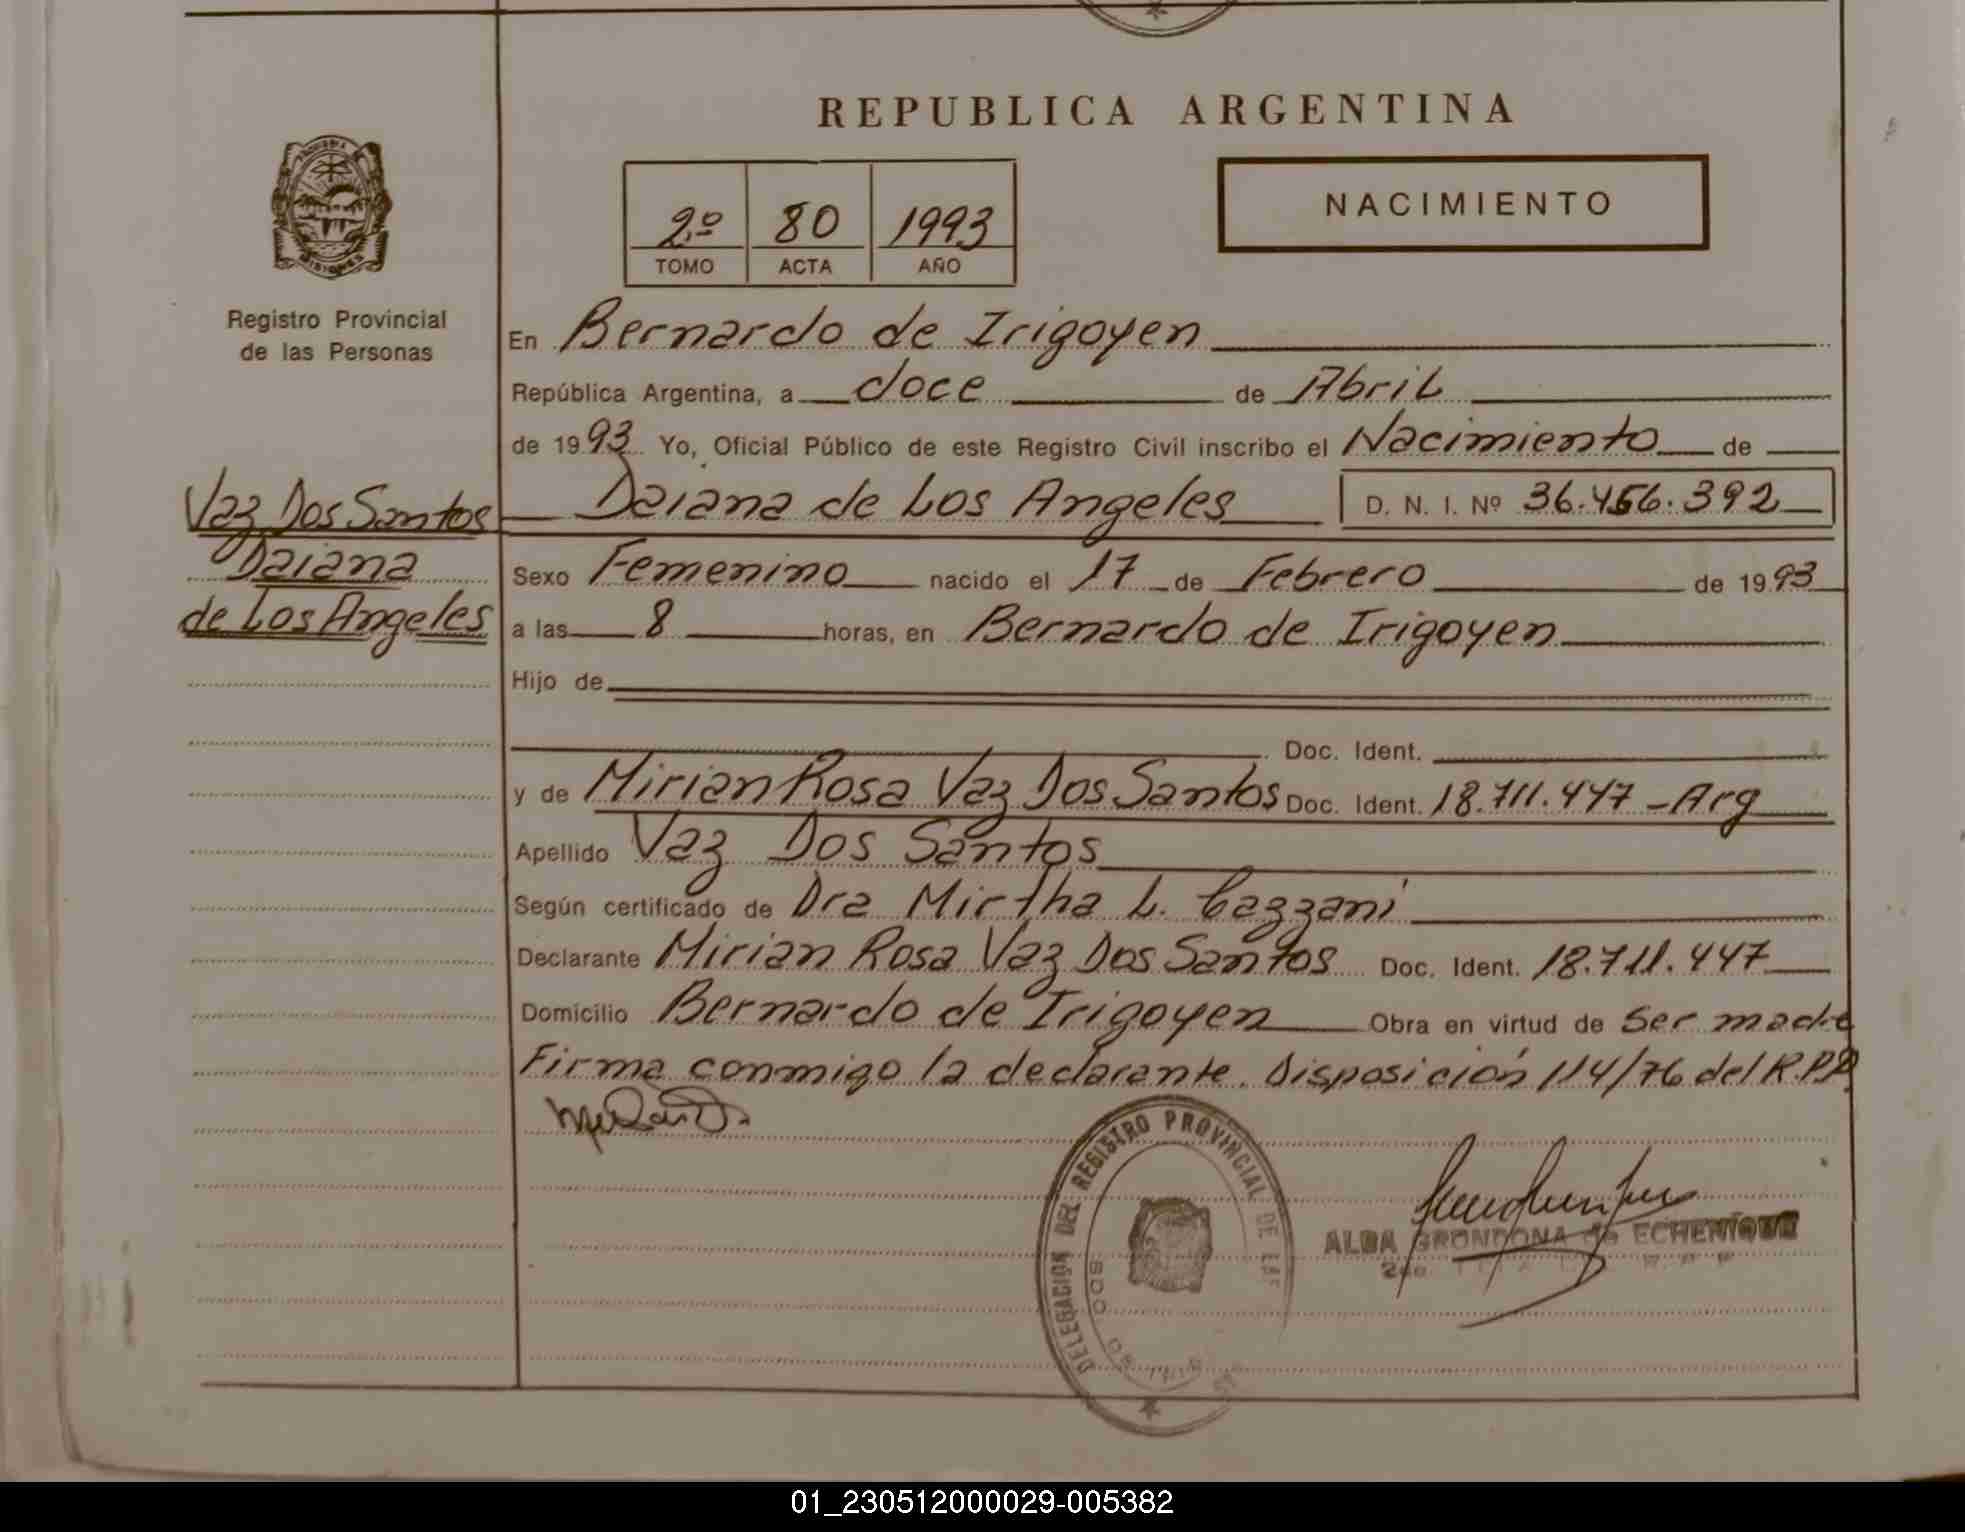 REPUBLICA ARGENTINA
NACIMIENTO
2º 80 1993
TOMO ACTA AÑO
MISIONES
Registro Provincial
de las Personas
Vaz Dos Santos
Daiana
de Los Angeles
En Bernardo de Irigoyen
República Argentina, a doce de Abril
de 1993 Yo, Oficial Público de este Registro Civil inscribo el Nacimiento de
Daiana de Los Angeles D. N. I. Nº 36.456.392
Sexo Femenino nacido el 17 de Febrero de 1993
a las 8 horas, en Bernardo de Irigoyen
Hijo de
Doc. Ident.
y de Mirian Rosa Vaz Dos Santos Doc. Ident. 18.711.447 - Arg
Apellido Vaz Dos Santos
Según certificado de Dra Mirtha L. Cazzani
Declarante Mirian Rosa Vaz Dos Santos Doc. Ident. 18.711.447
Domicilio Bernardo de Irigoyen Obra en virtud de Ser madre
Firma conmigo la declarante. Disposición 114/76 del R.P.P.
DELEGACION DEL REGISTRO PROVINCIAL DE LAS
ALBA GRONDONA de ECHENIQUE
01_230512000029-005382